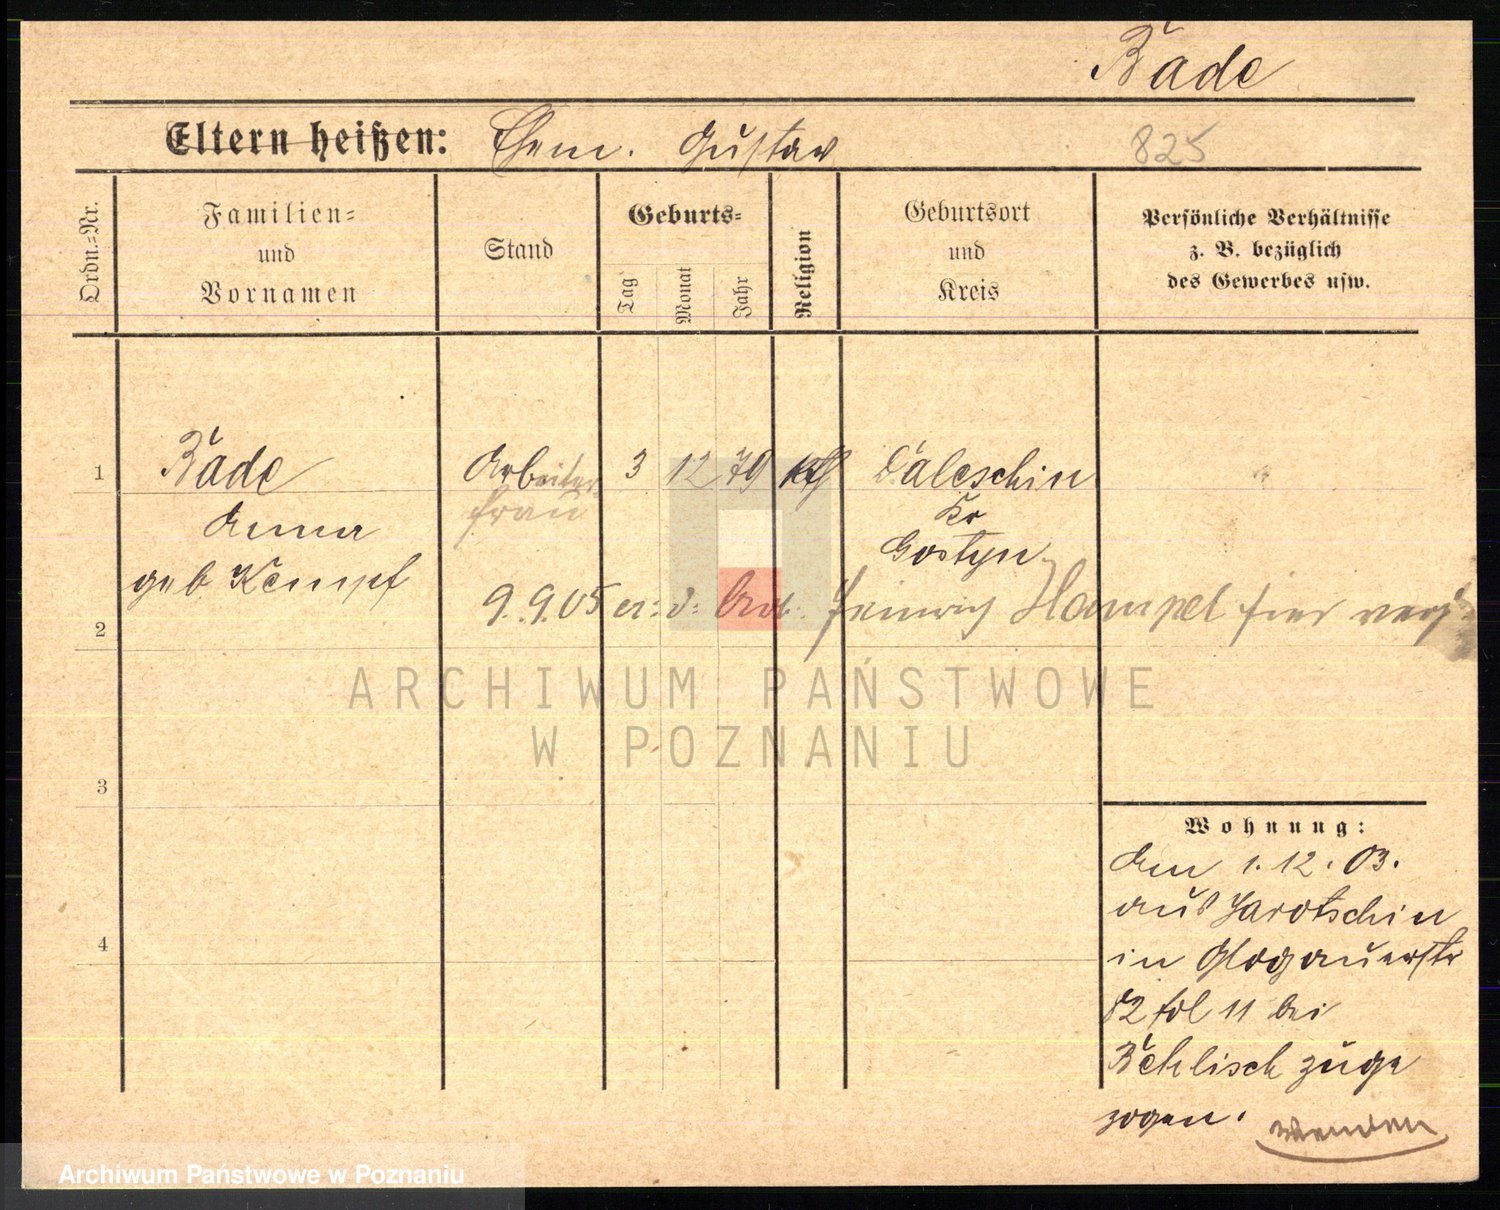 Bade
Eltern heißen: Ehem. Gustav
825
Ordn.=Nr.
Familien=
und
Vornamen
Stand
Geburts=
Tag
Monat
Jahr
Religion
Geburtsort
und
Kreis
Persönliche Verhältnisse
z. B. bezüglich
des Gewerbes usw.
1 Bade Arbeiter 3 12 79 kth Daleschin
frau Kr
Anna Gostyn
geb Kempf
9.9.05 Heinrich Hampel hier
2
3
4
Wohnung:
den 1. 12. 03.
aus Jarotschin
in Glogauerstr
82 bei
zuge
zogen.
wenden
ARCHIWUM PAŃSTWOWE
W POZNANIU
Archiwum Państwowe w Poznaniu